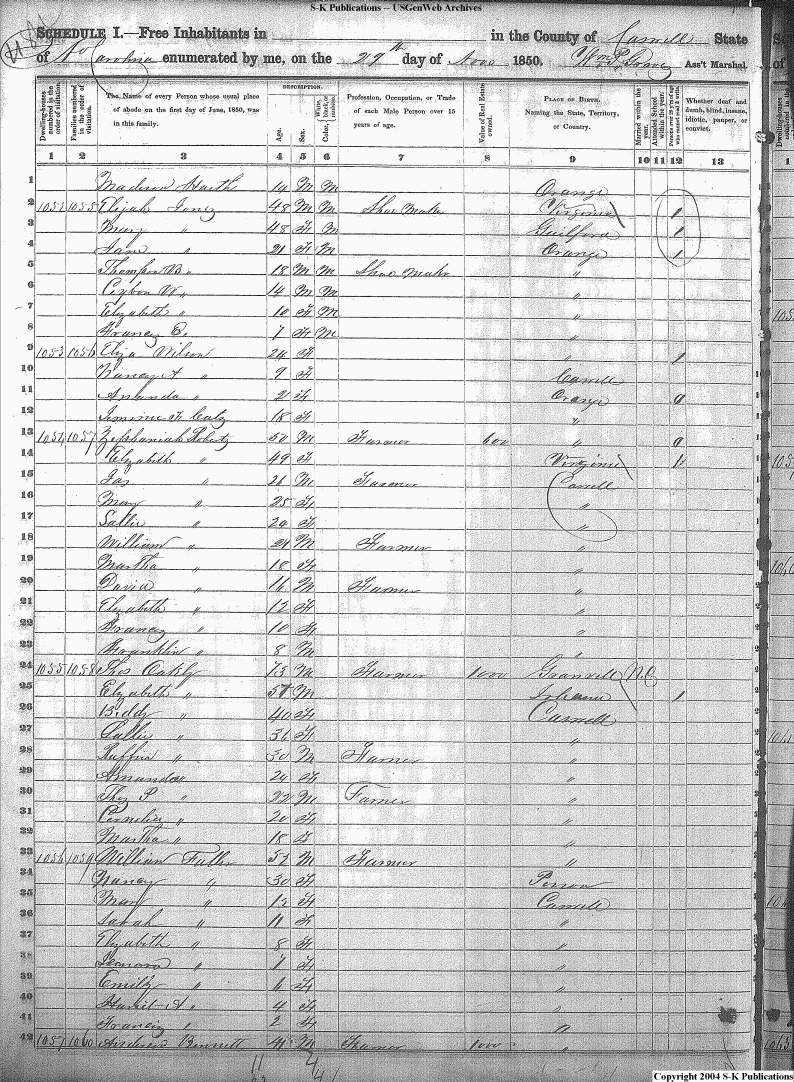 S-K Publications -- USGenWeb Archives
SCHEDULE I.—Free Inhabitants in in the County of Caswell State
of No Carolina enumerated by me, on the 29th day of Nov 1850. Wm P. Graves Ass't Marshal.
Dwelling-houses numbered in the order of visitation.
Families numbered in the order of visitation.
The Name of every Person whose usual place of abode on the first day of June, 1850, was in this family.
DESCRIPTION.
Age.
Sex.
White, black, or mulatto.
Color,
Profession, Occupation, or Trade of each Male Person over 15 years of age.
Value of Real Estate owned.
PLACE OF BIRTH.
Naming the State, Territory, or Country.
Married within the year.
Attended School within the year.
Persons over 20 y'rs of age who cannot read & write.
Whether deaf and dumb, blind, insane, idiotic, pauper, or convict.
1 2 3 4 5 6 7 8 9 10 11 12 13
1 Madison 14 M M Orange
2 1052 1055 Elijah Jones 48 M M Shoe Maker Virginia 1
3 " 48 F M Guilford 1
4 Jane " 21 F M Orange 1
5 Thompson B " 18 M M Shoe Maker "
6 W " 14 M M "
7 Elizabeth " 10 F M "
8 Francy E. 7 F M
9 1053 1056 Eliza Wilson 24 F " 1
10 " 9 F Caswell
11 Amanda " 21 F Orange
12 18 F "
13 1054 1057 Zephaniah Roberts 50 M Farmer 600 "
14 Elizabeth " 49 F Virginia 1
15 Jas " 26 M Farmer Caswell
16 Mary " 25 F "
17 Sallie " 24 F "
18 William " 21 M Farmer "
19 Martha " 18 F "
20 David " 16 M Farmer "
21 Elizabeth " 12 F "
22 Francy " 10 F "
23 Franklin " 8 M "
24 1055 1058 Thos Oakly 73 M Farmer 1000 Granvill N.C
25 Elizabeth " 57 M 1
26 Biddy " 40 F Caswell
27 Sallie " 36 F "
28 Ruffin " 30 M Farmer "
29 Amanda " 24 F "
30 Thos P " 22 M Farmer "
31 Cornelia " 20 F "
32 Martha " 18 F "
33 1056 1059 William Fuller 57 M Farmer "
34 Nancy " 30 F Person
35 Mary " 12 F Caswell
36 Sarah " 11 F "
37 Elizabeth " 8 F "
38 Leonora " 7 F "
39 Emily " 6 F "
40 A " 4 F "
41 Francis " 2 F "
42 1057 1060 Anderson Bennett 41 M Farmer 1000 "
Copyright 2004 S-K Publications